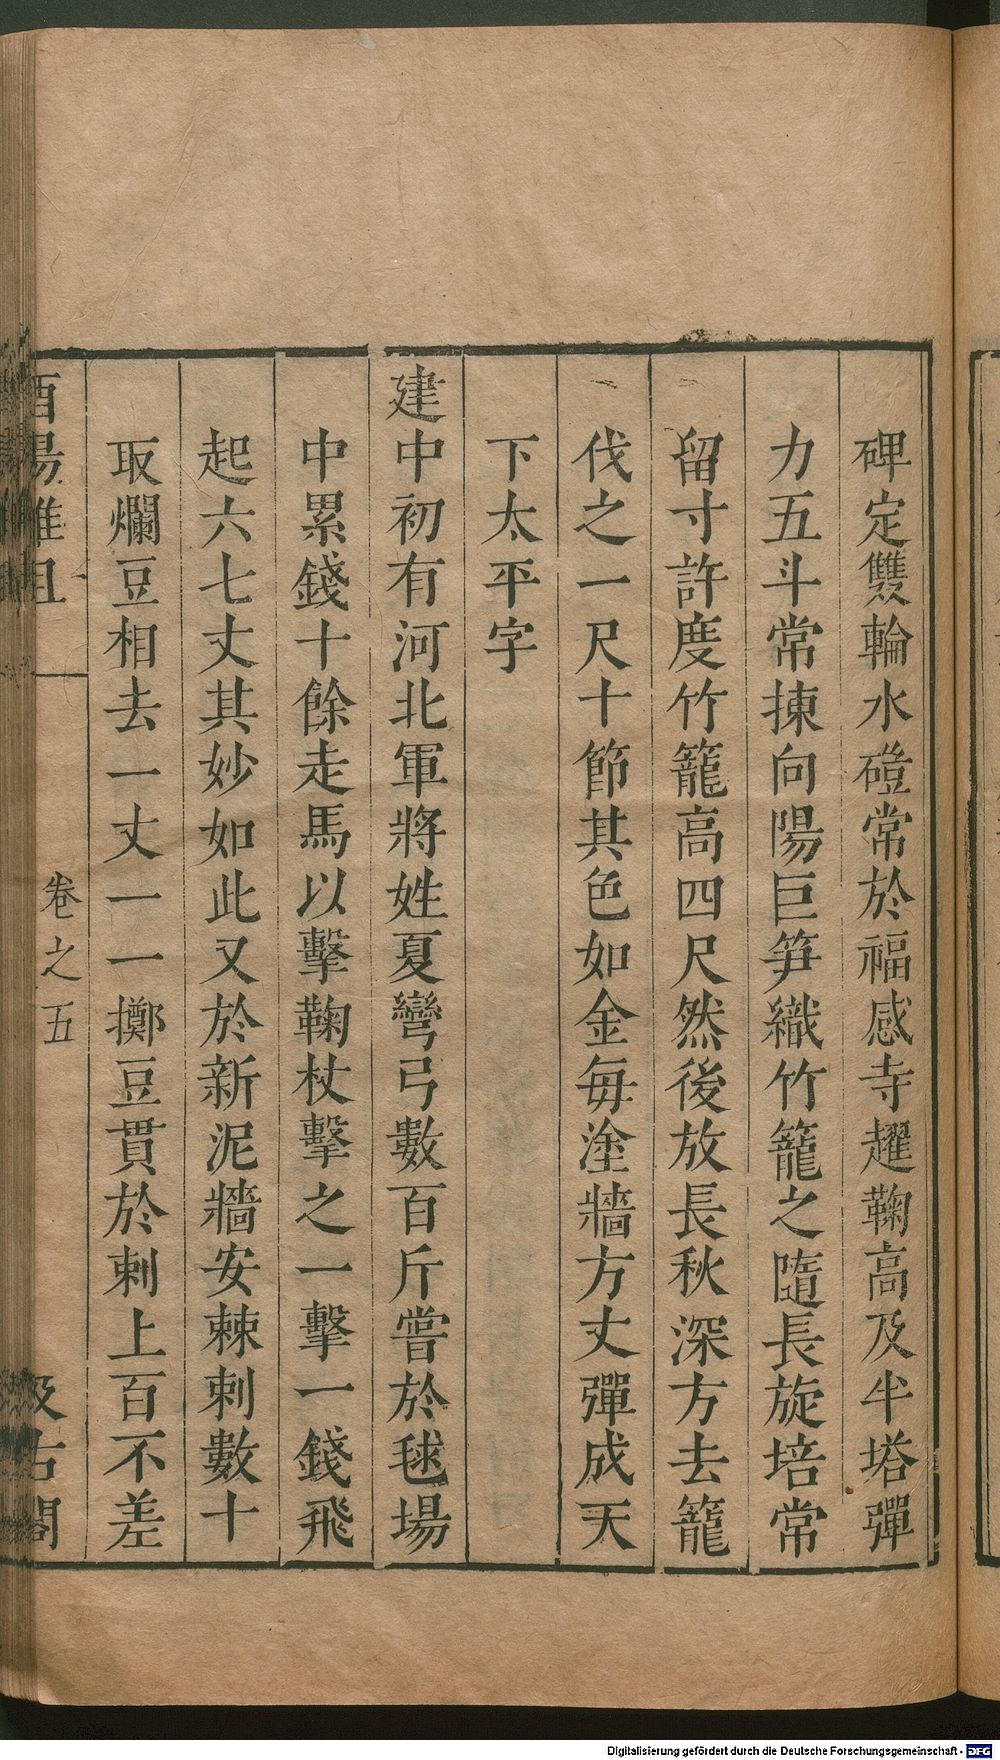 碑定雙輪水磑常於福感寺趯鞠高及半塔彈
力五斗常揀向陽巨笋織竹籠之隨長旋培常
留寸許度竹籠高四尺然後放長秋深方去籠
伐之一尺十節其色如金每塗牆方丈彈成天
下太平字
建中初有河北軍將姓夏彎弓數百斤嘗於毬場
中累錢十餘走馬以擊鞠杖擊之一擊一錢飛
起六七丈其妙如此又於新泥牆安棘刺數十
取爛豆相去一丈一一擲豆貫於刺上百不差
酉陽雜俎
卷之五
汲古閣
Digitalisierung gefördert durch die Deutsche Forschungsgemeinschaft - DFG